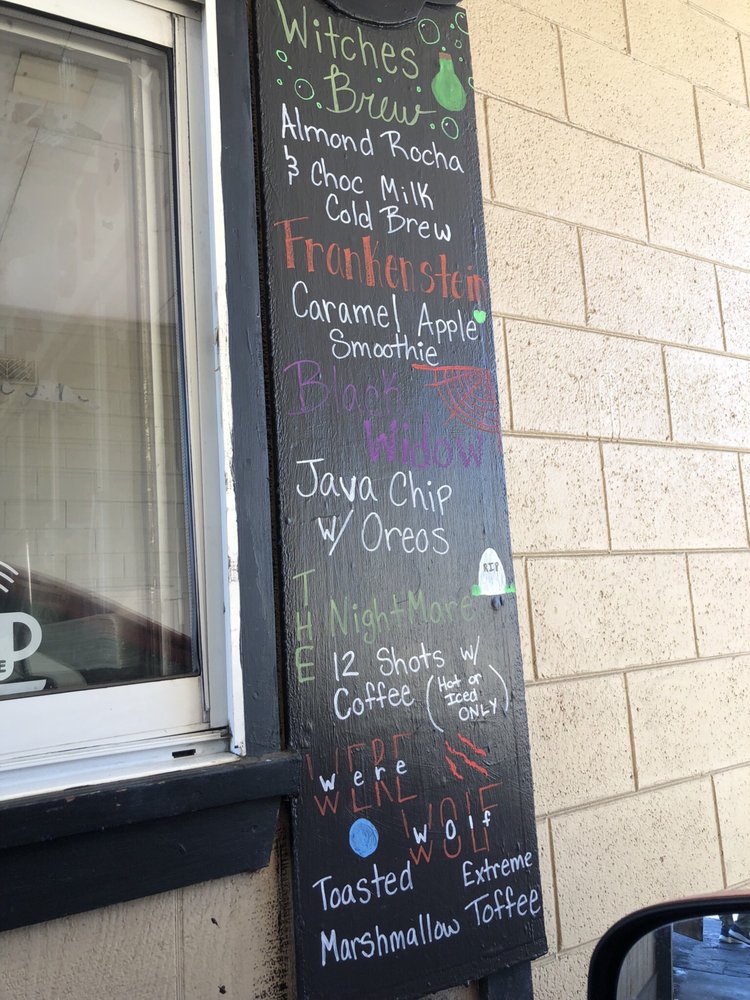 Witches
Brew
Almond Rocha
& Choc Milk
Cold Brew
Frankenstein
Caramel Apple
Smoothie
Black
Widow
Java Chip
w/ Oreos
RIP
THE NightMare
12 Shots w/
Coffee (Hot or
Iced
ONLY)
WERE
were
WOLF
wolf
Toasted Extreme
Marshmallow Toffee